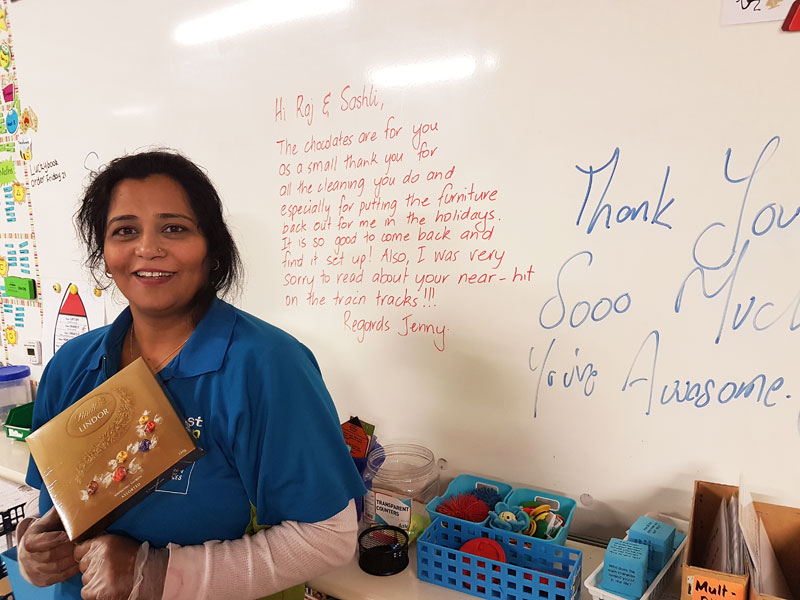 Hi Raj & Sashli,
The chocolates are for you
as a small thank you for
all the cleaning you do and
especially for putting the furniture
back out for me in the holidays.
It is so good to come back and
find it set up! Also, I was very
sorry to read about your near-hit
on the train tracks!!!
Regards Jenny.
Thank You
Sooo Much
You're Awesome.
Lucky book
order Friday 21
Lindt
LINDOR
TRANSPARENT
COUNTERS
Mult-